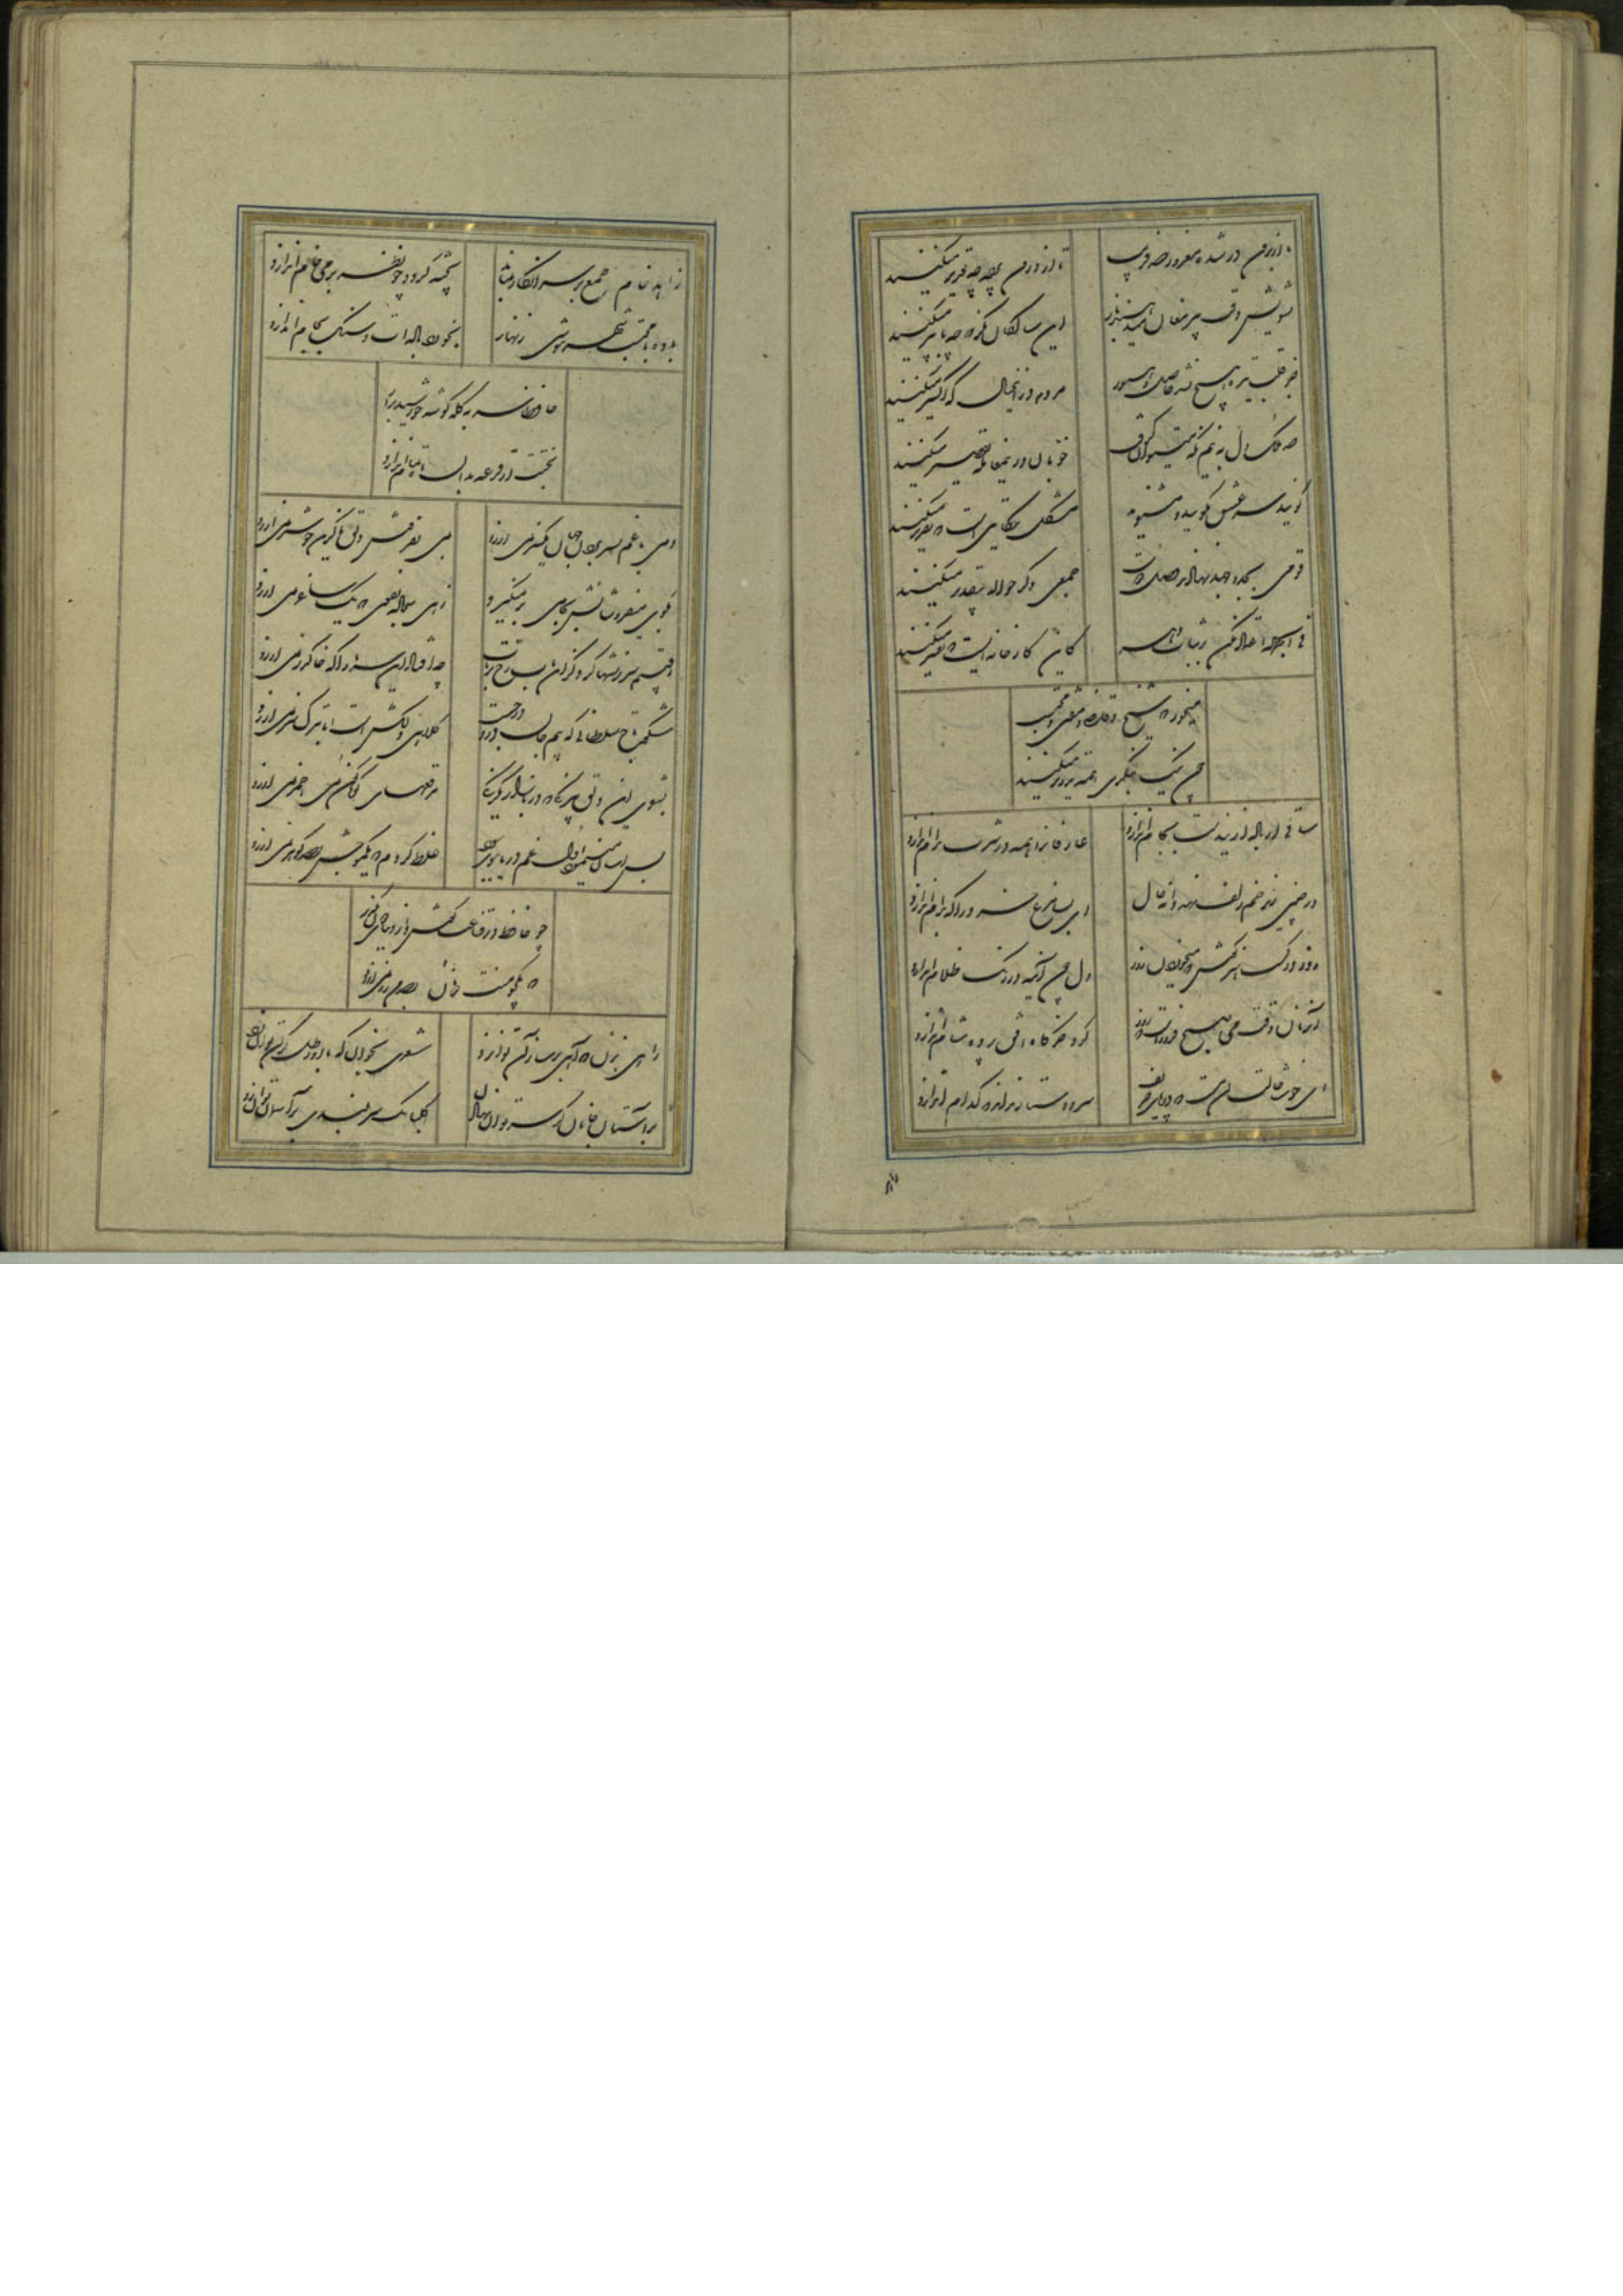 ما از برون در شده مغرور صد فریب
تا از درون پرده چه تدبیر میکنند
تشویش وقت پیر مغان میدهند باز
این سالکان نگر که چه با پیر میکنند
جز قلب تیره هیچ نشد حاصل و هنوز
مردم در این خیال که اکسیر میکنند
صد ملک دل به نیم نظر میتوان گرفت
خوبان در این معامله تقصیر میکنند
گویند سر عشق مگویید و مشنوید
مشکل حکایتی است که تقریر میکنند
قومی بجد و جهد نهادند وصل دوست
جمعی دگر حواله بتقدیر میکنند
فی الجمله اعتماد مکن بر ثبات دهر
کاین کارخانه ایست که تغییر میکنند
میخور که شیخ و حافظ و مفتی و محتسب
چون نیک بنگری همه تزویر میکنند
ساقی ار باده از این دست بجام اندازد
عارفان را همه در شرب مدام اندازد
ور چنین زیر خم زلف نهد دانه خال
ای بسا مرغ خرد را که بدام اندازد
روز در کسب هنر کوش که میخوردن روز
دل چون آینه در زنگ ظلام اندازد
آنزمان وقت می صبح فروغ است که
گرد خرگاه افق پرده شام اندازد
ای خوشا حالت آن مست که در پای حریف
سر و دستار نداند که کدام اندازد
زاهد خام طمع بر سر انکار بماند
پخته گردد چو نظر بر می خام اندازد
باده با محتسب شهر ننوشی زنهار
بخورد باده ات و سنگ بجام اندازد
حافظا سر به کله گوشه خورشید برآر
بختت ار قرعه بدان ماه تمام اندازد
دمی با غم بسر بردن جهان یکسر نمی ارزد
بمی بفروش دلق ما کزین خوشتر نمی ارزد
بکوی میفروشانش بجامی بر نمیگیرند
زهی سجاده تقوی که یک ساغر نمی ارزد
رقیبم سرزنشها کرد کز این باب رخ برتاب
چه افتاد این سر ما را که خاک در نمی ارزد
شکوه تاج سلطانی که بیم جان در او درجست
کلاهی دلکش است اما بترک سر نمی ارزد
بشوی این
غلط کردم که یک موجش بصد گوهر نمی ارزد
چو حافظ در قناعت کوش و از دنیای دون بگذر
که یک جو منت دونان بصد من زر نمی ارزد
راهی بزن که آهی بر ساز آن توان زد
شعری بخوان که با او رطل گران توان زد
بر آستان جانان گر سر توان نهادن
گلبانگ سربلندی بر آسمان توان زد